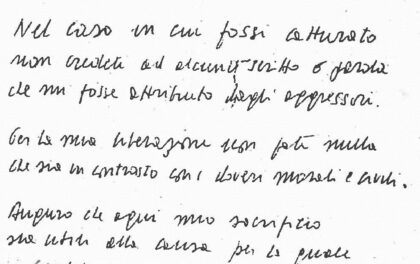 Nel caso in cui fossi catturato
non credete ad alcun scritto o parola
che mi fosse attribuito dagli aggressori.
Per la mia liberazione non fate nulla
che sia in contrasto con i doveri morali e civili.
Auguro che ogni mio sacrificio
sia utile alla causa per la quale